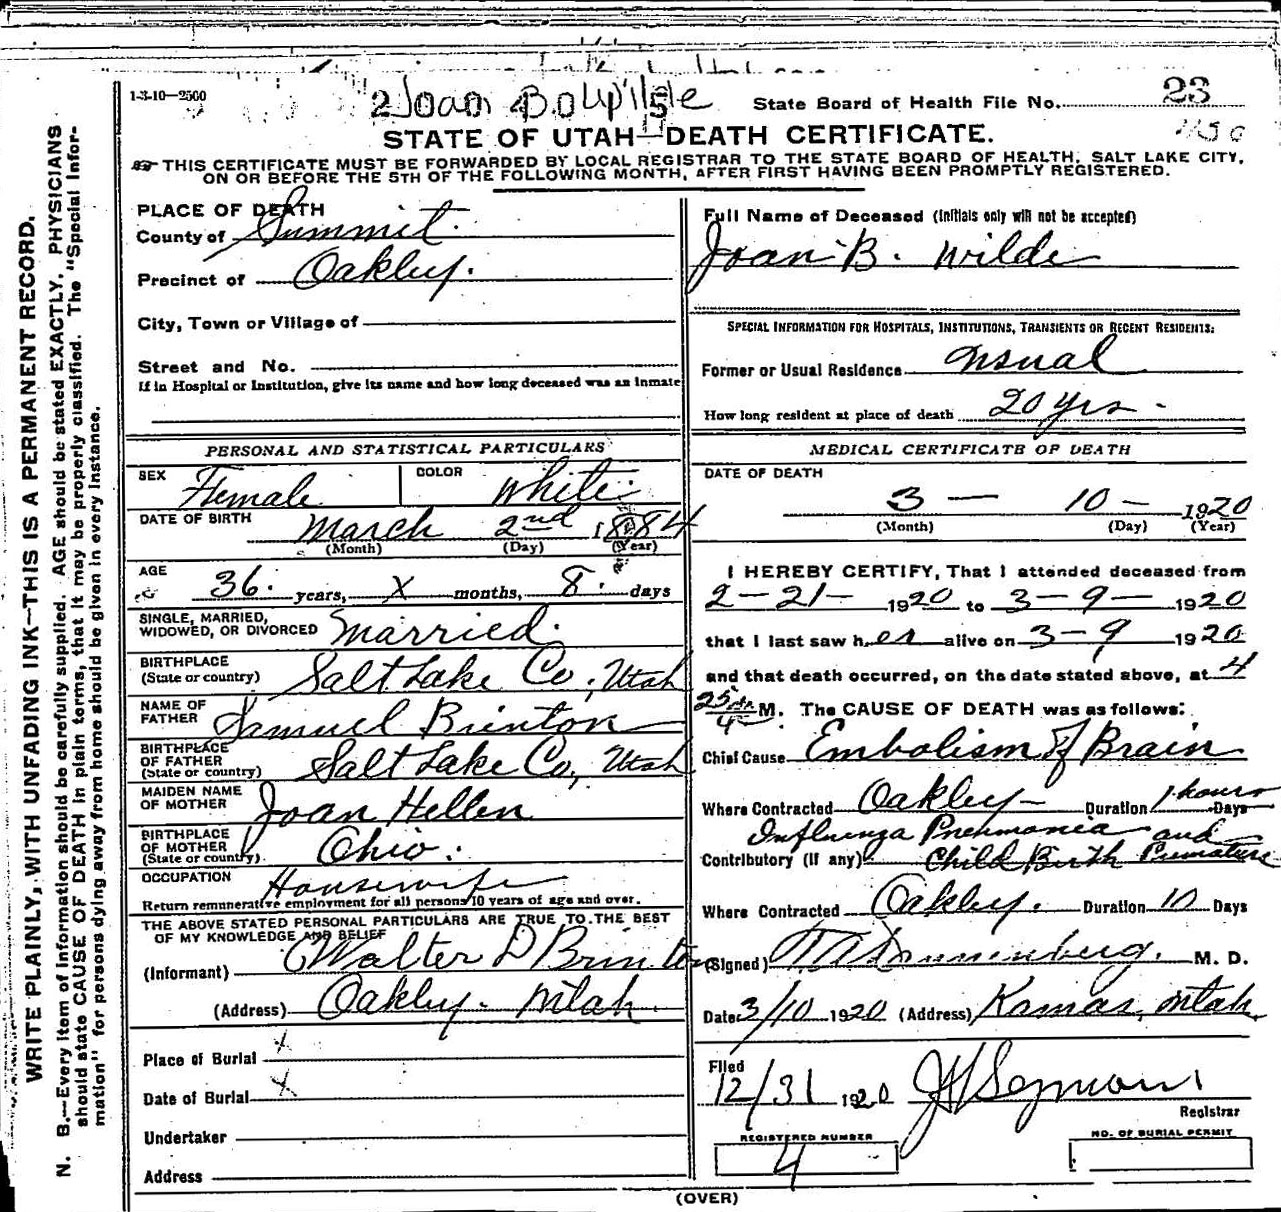 1-3-10—2500
State Board of Health File No. 23
STATE OF UTAH—DEATH CERTIFICATE.
THIS CERTIFICATE MUST BE FORWARDED BY LOCAL REGISTRAR TO THE STATE BOARD OF HEALTH, SALT LAKE CITY,
ON OR BEFORE THE 5TH OF THE FOLLOWING MONTH, AFTER FIRST HAVING BEEN PROMPTLY REGISTERED.
WRITE PLAINLY, WITH UNFADING INK—THIS IS A PERMANENT RECORD.
N. B.—Every item of information should be carefully supplied. AGE should be stated EXACTLY. PHYSICIANS
should state CAUSE OF DEATH in plain terms, that it may be properly classified. The "Special Infor-
mation" for persons dying away from home should be given in every instance.
PLACE OF DEATH
County of Summit.
Precinct of Oakley.
City, Town or Village of
Street and No.
If in Hospital or Institution, give its name and how long deceased was an inmate
PERSONAL AND STATISTICAL PARTICULARS
SEX Female COLOR White
DATE OF BIRTH March 2nd 1884
(Month) (Day) (Year)
AGE 36. years, X months, 8. days
SINGLE, MARRIED,
WIDOWED, OR DIVORCED Married.
BIRTHPLACE
(State or country) Salt Lake Co., Utah
NAME OF
FATHER Samuel Brinton
BIRTHPLACE
OF FATHER
(State or country) Salt Lake Co., Utah
MAIDEN NAME
OF MOTHER Joan Hellen
BIRTHPLACE
OF MOTHER
(State or country) Ohio.
OCCUPATION Housewife
Return remunerative employment for all persons 10 years of age and over.
THE ABOVE STATED PERSONAL PARTICULARS ARE TRUE TO THE BEST
OF MY KNOWLEDGE AND BELIEF
(Informant) Walter D Brinton
(Address) Oakley Utah
Place of Burial X
Date of Burial X
Undertaker
Address
Full Name of Deceased (Initials only will not be accepted)
Joan B. Wilde
SPECIAL INFORMATION FOR HOSPITALS, INSTITUTIONS, TRANSIENTS OR RECENT RESIDENTS:
Former or Usual Residence usual
How long resident at place of death 20 yrs.
MEDICAL CERTIFICATE OF DEATH
DATE OF DEATH
3 — 10 — 1920
(Month) (Day) (Year)
I HEREBY CERTIFY, That I attended deceased from
2 — 21 — 1920 to 3 — 9 — 1920
that I last saw her alive on 3 — 9 1920
and that death occurred, on the date stated above, at 4
25 M. The CAUSE OF DEATH was as follows:
Chief Cause Embolism of Brain
Where Contracted Oakley Duration 1 hours Days
Influenza Pneumonia and
Contributory (if any) Child Birth Premature
Where Contracted Oakley. Duration 10 Days
(Signed) M. D.
Date 3/10 1920 (Address) Kamas, Utah
Filed
12/31 1920
Registrar
REGISTERED NUMBER
4
NO. OF BURIAL PERMIT
(OVER)